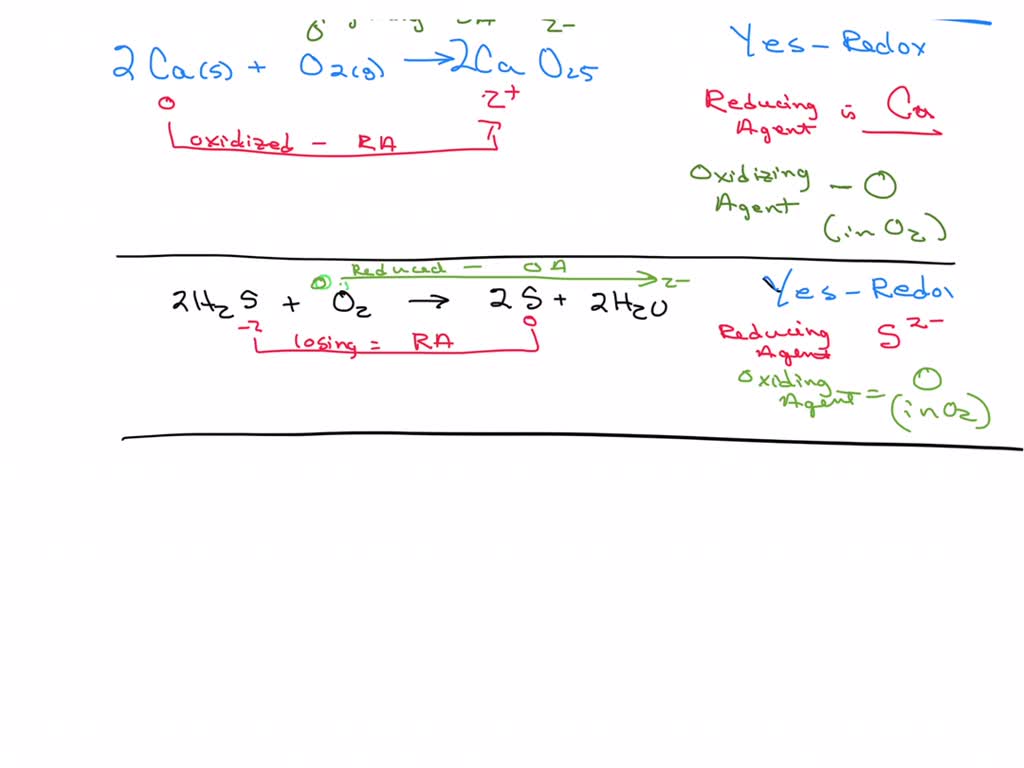 0 OA 2-
2 Ca(s) + O2(g) → 2Ca O2s
0 2+
oxidized - RA
Yes - Redox
Reducing Agent is Ca
Oxidizing Agent - O
(in O2)
0 Reduced - OA 2-
2H2S + O2 → 2S + 2H2O
-2 0
losing = RA
Yes - Redox
Reducing Agent S2-
Oxiding Agent = O
(in O2)